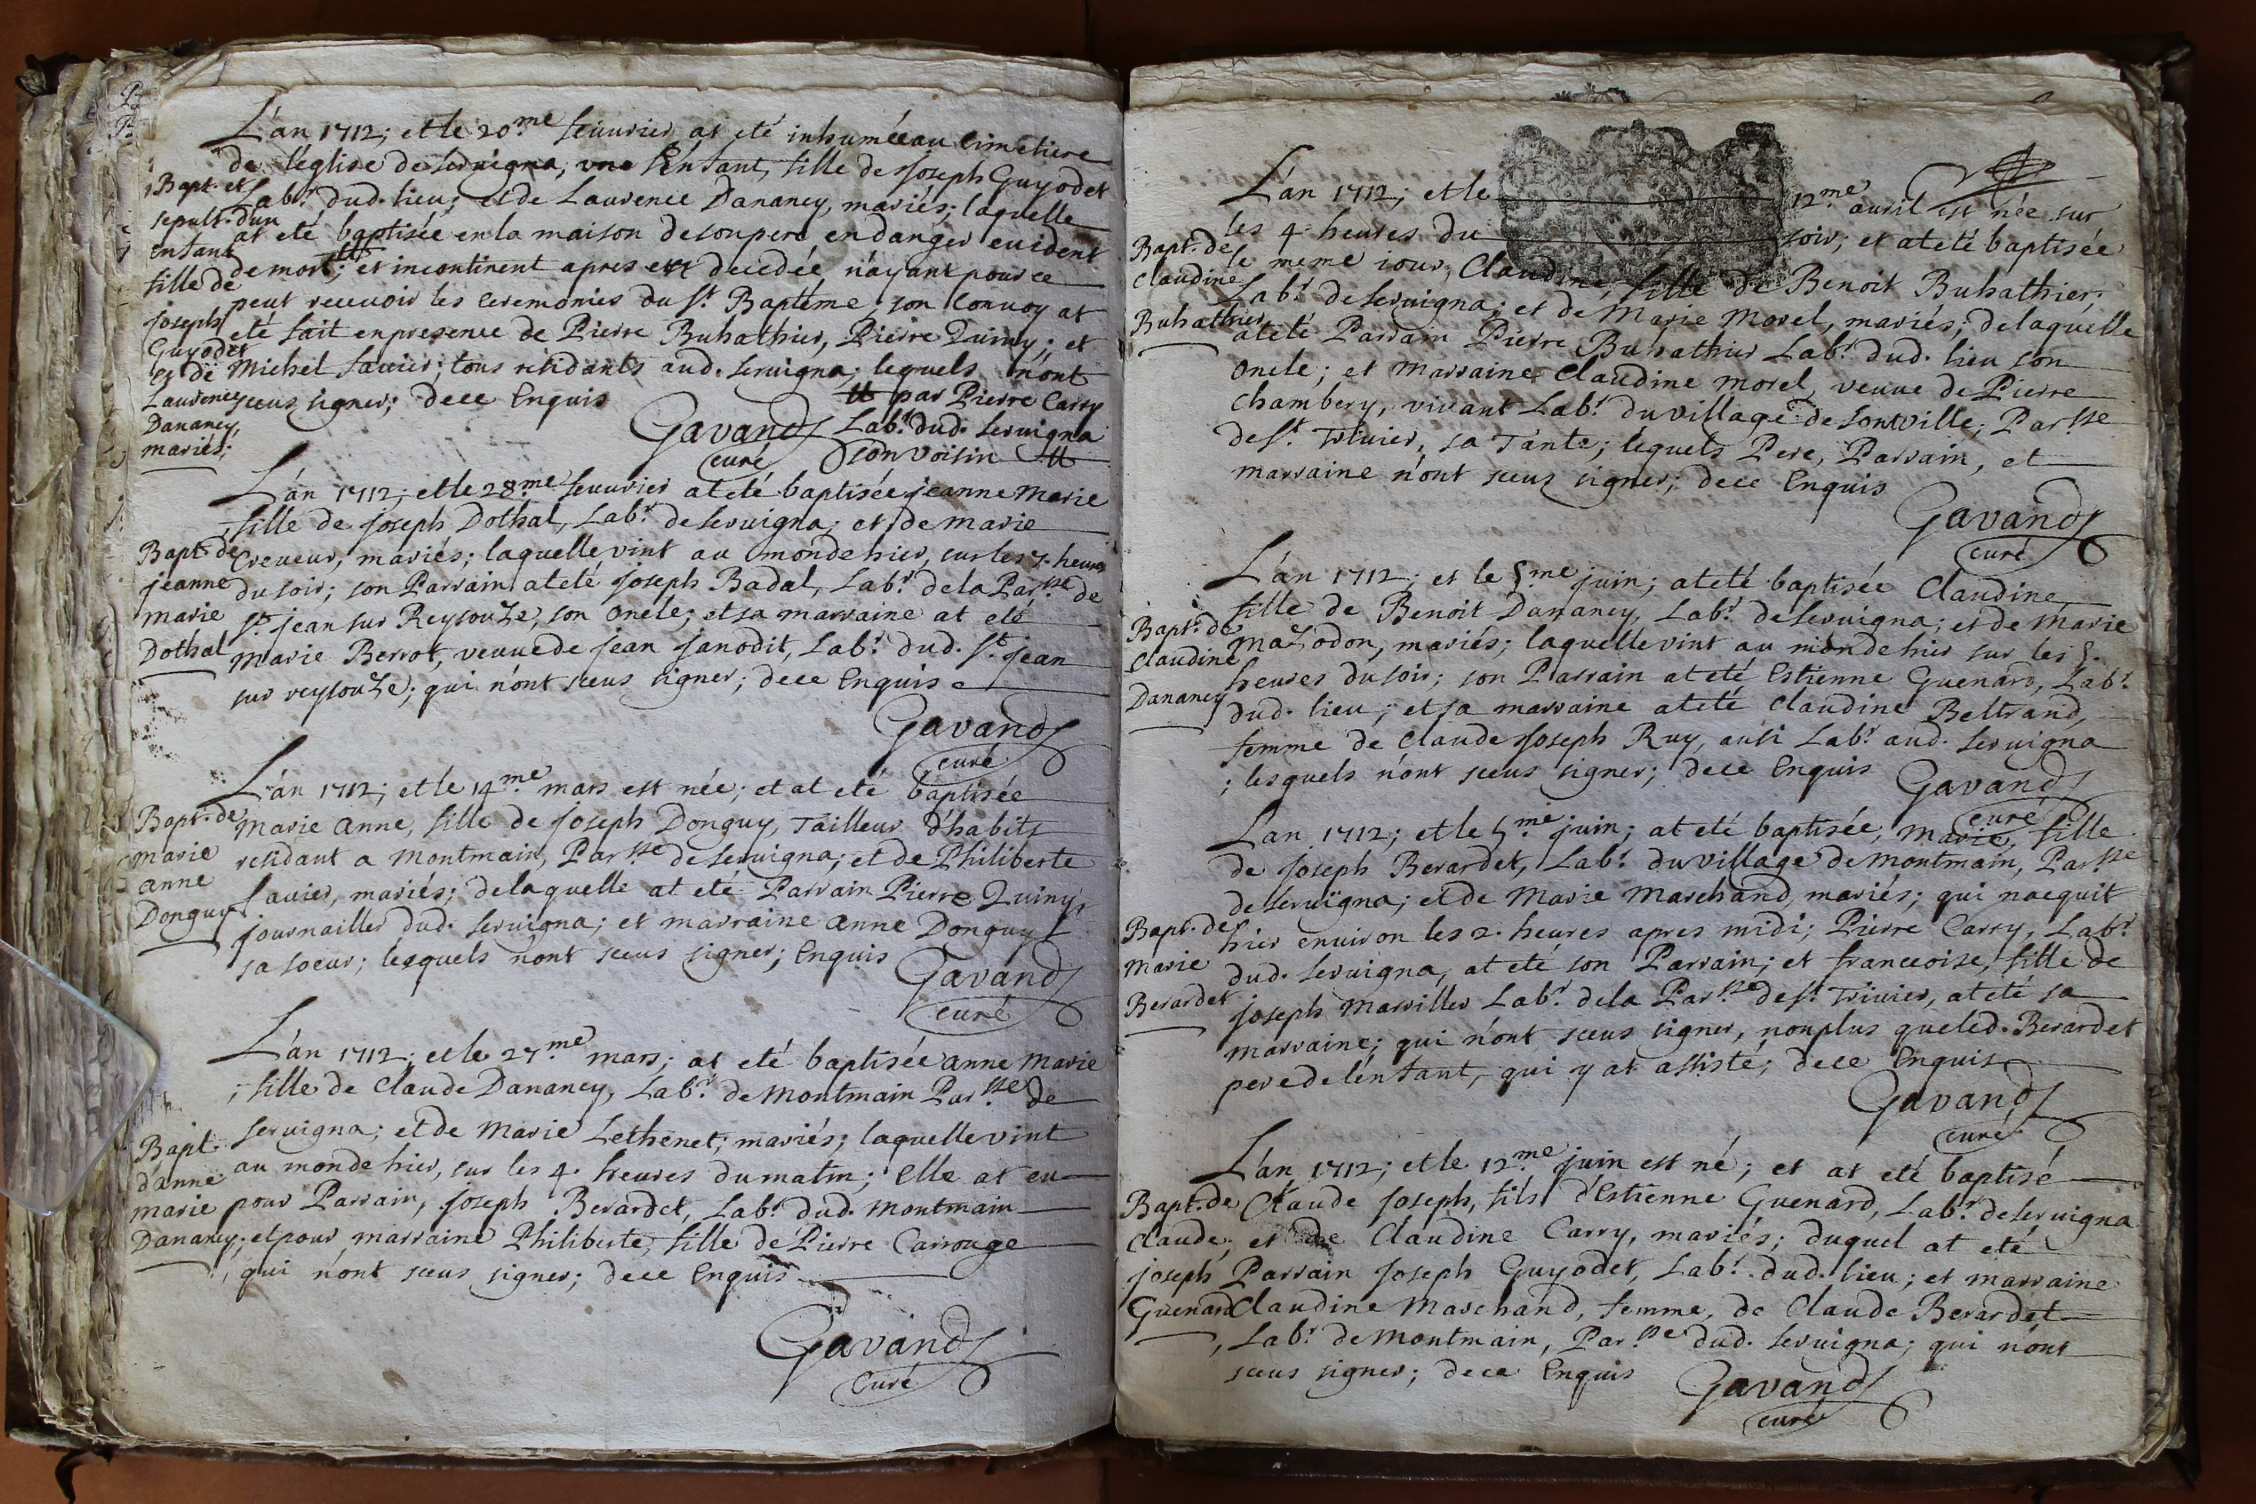 L'an 1712; et le 20.me feuurier at eté inhumée au Cimetiere
de l'église de seruigna, vne Enfant, fille de Joseph Guyodet
Lab.r dud. lieu; et de Laurence Dananey, mariés; laquelle
at eté baptisée en la maison de son pere, en danger euident
de mort; # et incontinent apres est decedée n'ayant pour ce
peut receuoir les Ceremonies du s.t Baptême, son Convoy at
eté fait en presence de Pierre Buhathier, Pierre Quiny; et
Michel sauier; tous residants aud. seruigna; lesquels n'ont
sceus signer; de ce Enquis
# par Pierre Carry
Lab.r dud. seruigna
son voisin #
Gavand
curé
Bapt. et
sepult. d'un
enfant
fille de
Joseph
Guyodet
et de
Laurence
Dananey,
mariés;
L'an 1712; et le 28.me feuurier at eté baptisée jeanne Marie
, fille de joseph Dothal, Lab.r de seruigna; et de marie
Creveur, mariés; laquelle vint au monde hier, sur les 7. heures
du soir; son Parrain at eté joseph Badal, Lab.r de la Par.sse de
s.t jean sur Reysouze, son oncle; et sa marraine at eté
Marie Berrot, veuue de jean janodit, Lab.r dud. s.t jean
sur reysouze; qui n'ont sceus signer; de ce Enquis
Gavand
curé
Bapt. de
jeanne
marie
Dothal
L'an 1712; et le 14.me mars est née; et at eté baptisée
marie anne, fille de joseph Donguy, Tailleur d'habits
residant a Montmain, Par.sse de seruigna; et de Philiberte
sauier, mariés; de laquelle at eté Parrain Pierre Quiny,
journaillier dud. seruigna; et marraine anne Donguy
sa soeur; lesquels n'ont sceus signer; Enquis
Gavand
curé
Bapt. de
marie
anne
Donguy
L'an 1712; et le 27.me mars; at eté baptisée anne Marie
; fille de Claude Dananey, Lab.r de Montmain Par.sse de
seruigna; et de Marie Lethenet; mariés; laquelle vint
au monde hier, sur les 4. heures du matin; Elle at eu
pour Parrain, joseph Berardet, Lab.r dud. Montmain
; et pour marraine Philiberte, fille de Pierre Carrouge
, qui n'ont sceus signer; de ce Enquis
Gavand
Curé
Bapt.
d'anne
marie
Dananey
L'an 1712; et le 12.me auril est née sur
les 4. heures du soir; et at eté baptisée
le meme iour, Claudine, fille de Benoit Buhathier,
Lab.r de seruigna; et de Marie Morel, mariés; de laquelle
at eté Parrain Pierre Buhathier Lab.r dud. lieu son
oncle; et Marraine Claudine morel, veuue de Pierre
Chambery, vivant Lab.r du village de sontville, Par.sse
de s.t Trivier, sa Tante; lequels Pere, Parrain, et
marraine n'ont sceus signer; de ce Enquis
Gavand
curé
Bapt. de
Claudine
Buhathier
L'an 1712; et le 5.me juin; at eté baptisée Claudine
fille de Benoit Dananey, Lab.r de seruigna; et de Marie
Mazodon, mariés; laquelle vint au monde hier sur les 5.
heures du soir; son Parrain at eté Estienne Guenard, Lab.r
dud. lieu; et sa marraine at eté Claudine Beltrand,
femme de Claude Joseph Ruy, ausi Lab.r aud. seruigna
; lesquels n'ont sceus signer; de ce Enquis
Gavand
curé
Bapt. de
Claudine
Dananey
L'an 1712; et le 5.me juin; at eté baptisée, Marie, fille
de joseph Berardet, Lab.r du village de Montmain, Par.sse
de seruïgna; et de Marie Marchand, mariés; qui nacquit
hier enuiron les 2. heures apres midi; Pierre Carry, Lab.r
dud. seruigna, at eté son Parrain; et francoise, fille de
joseph Marviller Lab.r de la Par.sse de s.t Trivier, at eté sa
marraine; qui n'ont sceus signer, nonplus que led. Berardet
pere de l'enfant, qui y at assisté; de ce Enquis
Gavand
curé
Bapt. de
Marie
Berardet
L'an 1712; et le 12.me juin est né; et at eté baptisé
Claude Joseph, fils d'Estienne Guenard, Lab.r de seruigna
et de Claudine Carry, mariés; duquel at eté
Parrain Joseph Guyodet, Lab.r dud. lieu; et marraine
Claudine Marchand, femme, de Claude Berardet
, Lab.r de Montmain, Par.sse dud. seruigna; qui n'ont
sceus signer; de ce Enquis
Gavand
curé
Bapt. de
Claude
joseph
Guenard